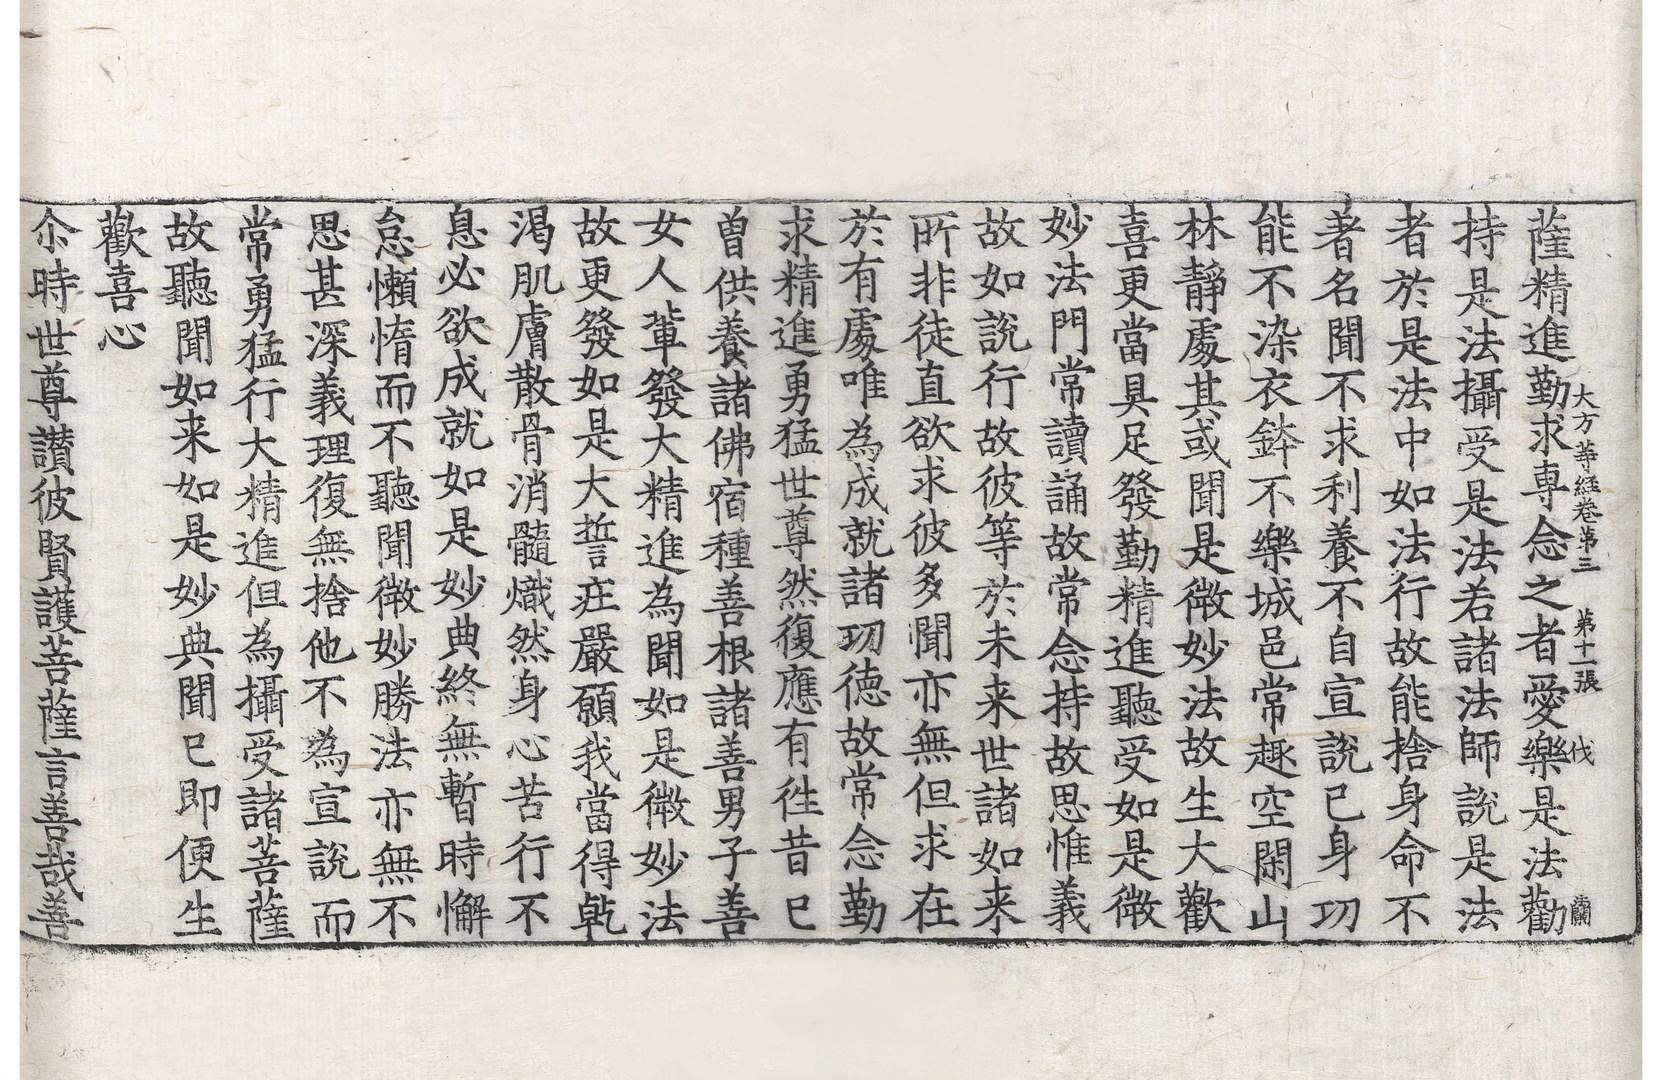 大方等経卷第三 第十一張 伐
薩精進勤求專念之者愛樂是法勸
持是法攝受是法若諸法師說是法
者於是法中如法行故能捨身命不
著名聞不求利養不自宣說已身功
能不染衣鉢不樂城邑常趣空閑山
林靜處其或聞是微妙法故生大歡
喜更當具足發勤精進聽受如是微
妙法門常讀誦故常念持故思惟義
故如說行故彼等於未来世諸如来
所非徒直欲求彼多聞亦無但求在
於有處唯為成就諸功德故常念勤
求精進勇猛世尊然復應有往昔已
曾供養諸佛宿種善根諸善男子善
女人輩發大精進為聞如是微妙法
故更發如是大誓莊嚴願我當得乾
渴肌膚散骨消髓熾然身心苦行不
息必欲成就如是妙典終無暫時懈
怠懶惰而不聽聞微妙勝法亦無不
思甚深義理復無捨他不為宣說而
常勇猛行大精進但為攝受諸菩薩
故聽聞如来如是妙典聞已即便生
歡喜心
尒時世尊讃彼賢護菩薩言善哉善